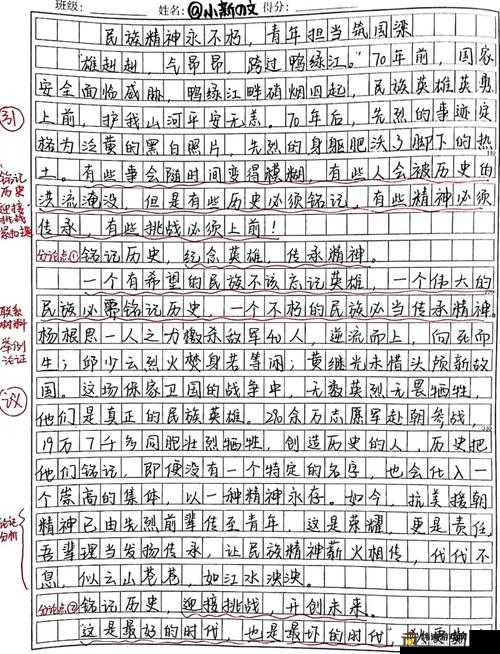 班级: 姓名:@小新の文 得分:
民族精神永不朽，青年担当筑国梁
"雄赳赳，气昂昂，跨过鸭绿江。"70年前，国家
安全面临威胁，鸭绿江畔硝烟四起，民族英雄英勇
上前，护我山河平安无恙。70年后，先烈的事迹定
格为泛黄的黑白照片，先烈的身躯肥沃了脚下的热
土。有些事会随时间变得模糊，有些人会被历史的
洪流淹没，但是有些历史必须铭记，有些精神必须
传承，有些挑战必须上前！
分论点①铭记历史，纪念英雄，传承精神。
一个有希望的民族不该忘记英雄，一个伟大的
民族必要铭记历史，一个不朽的民族必当传承精神。
杨根思一人之力歼杀敌军40人，逆流而上，向死而
生；邱少云烈火焚身若等闲；黄继光未惜头颅新故
国。这场保家卫国的战争中，无数英烈无畏牺牲，
他们是真正的民族英雄。280余万志愿军赴朝参战，
19万7千多同胞壮烈牺牲，创造历史的人，历史把
他们铭记，即便没有一个特定的名字，也会化入一
个崇高的集体，以一种精神永存。如今，抗美援朝
精神已由先烈前辈传至青年，这是荣耀，更是责任，
吾辈理当发扬传承，让民族精神薪火相传，代代不
息，似云山苍苍，如江水泱泱。
分论点②铭记历史，迎接挑战，开创未来。
这是最好的时代，也是最坏的时代，
引
铭记
历史
迎接
挑战
联系
材料
举例
论证
议
论证
分析